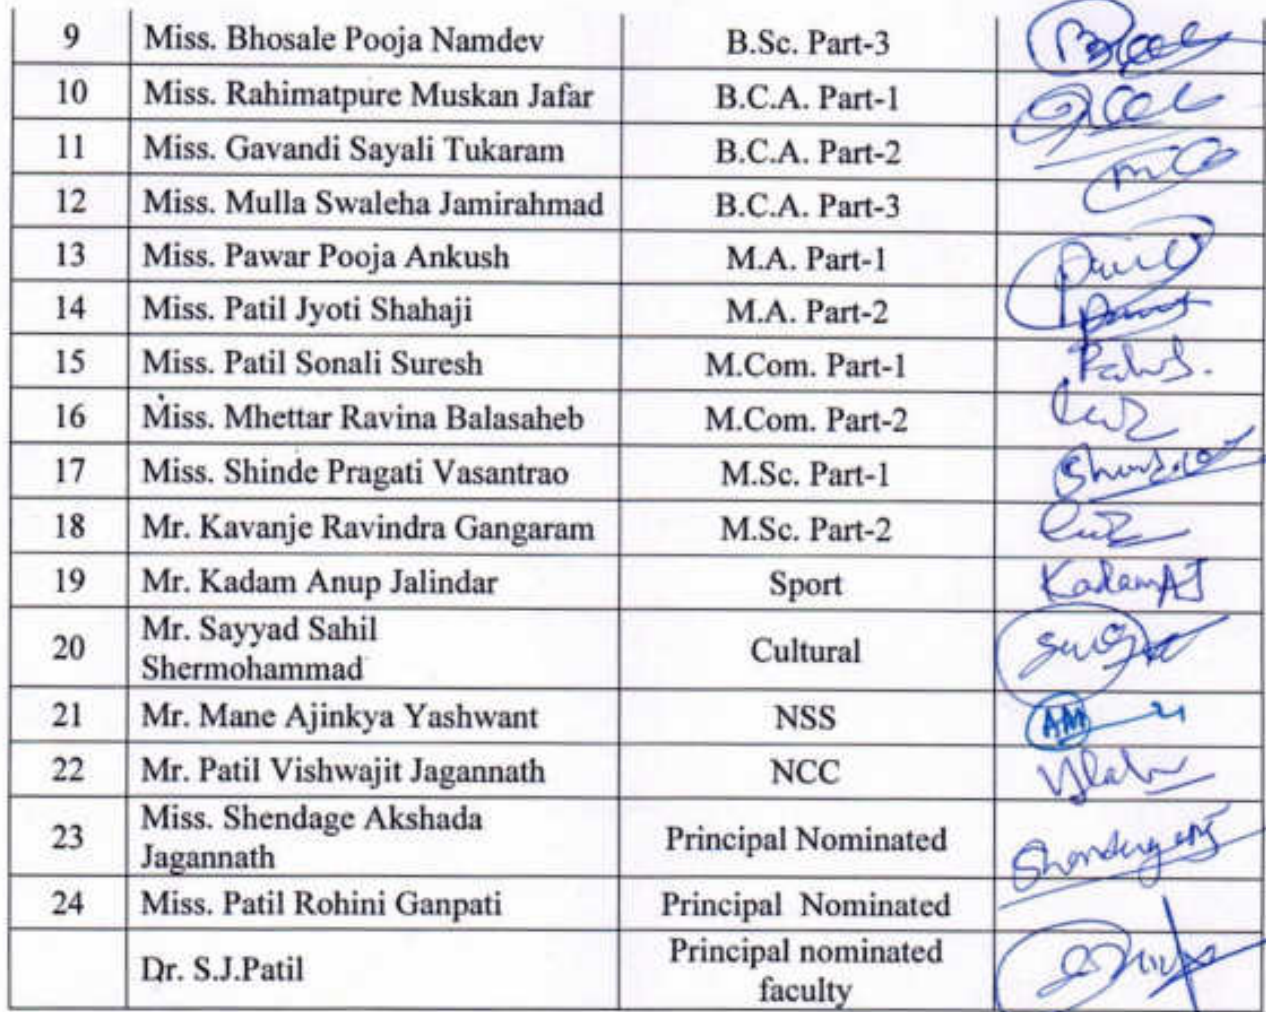 9 Miss. Bhosale Pooja Namdev B.Sc. Part-3
10 Miss. Rahimatpure Muskan Jafar B.C.A. Part-1
11 Miss. Gavandi Sayali Tukaram B.C.A. Part-2
12 Miss. Mulla Swaleha Jamirahmad B.C.A. Part-3
13 Miss. Pawar Pooja Ankush M.A. Part-1
14 Miss. Patil Jyoti Shahaji M.A. Part-2
15 Miss. Patil Sonali Suresh M.Com. Part-1
16 Miss. Mhettar Ravina Balasaheb M.Com. Part-2
17 Miss. Shinde Pragati Vasantrao M.Sc. Part-1
18 Mr. Kavanje Ravindra Gangaram M.Sc. Part-2
19 Mr. Kadam Anup Jalindar Sport KadamAJ
20 Mr. Sayyad Sahil
Shermohammad Cultural
21 Mr. Mane Ajinkya Yashwant NSS AM
22 Mr. Patil Vishwajit Jagannath NCC
23 Miss. Shendage Akshada
Jagannath Principal Nominated
24 Miss. Patil Rohini Ganpati Principal Nominated
Dr. S.J.Patil Principal nominated
faculty